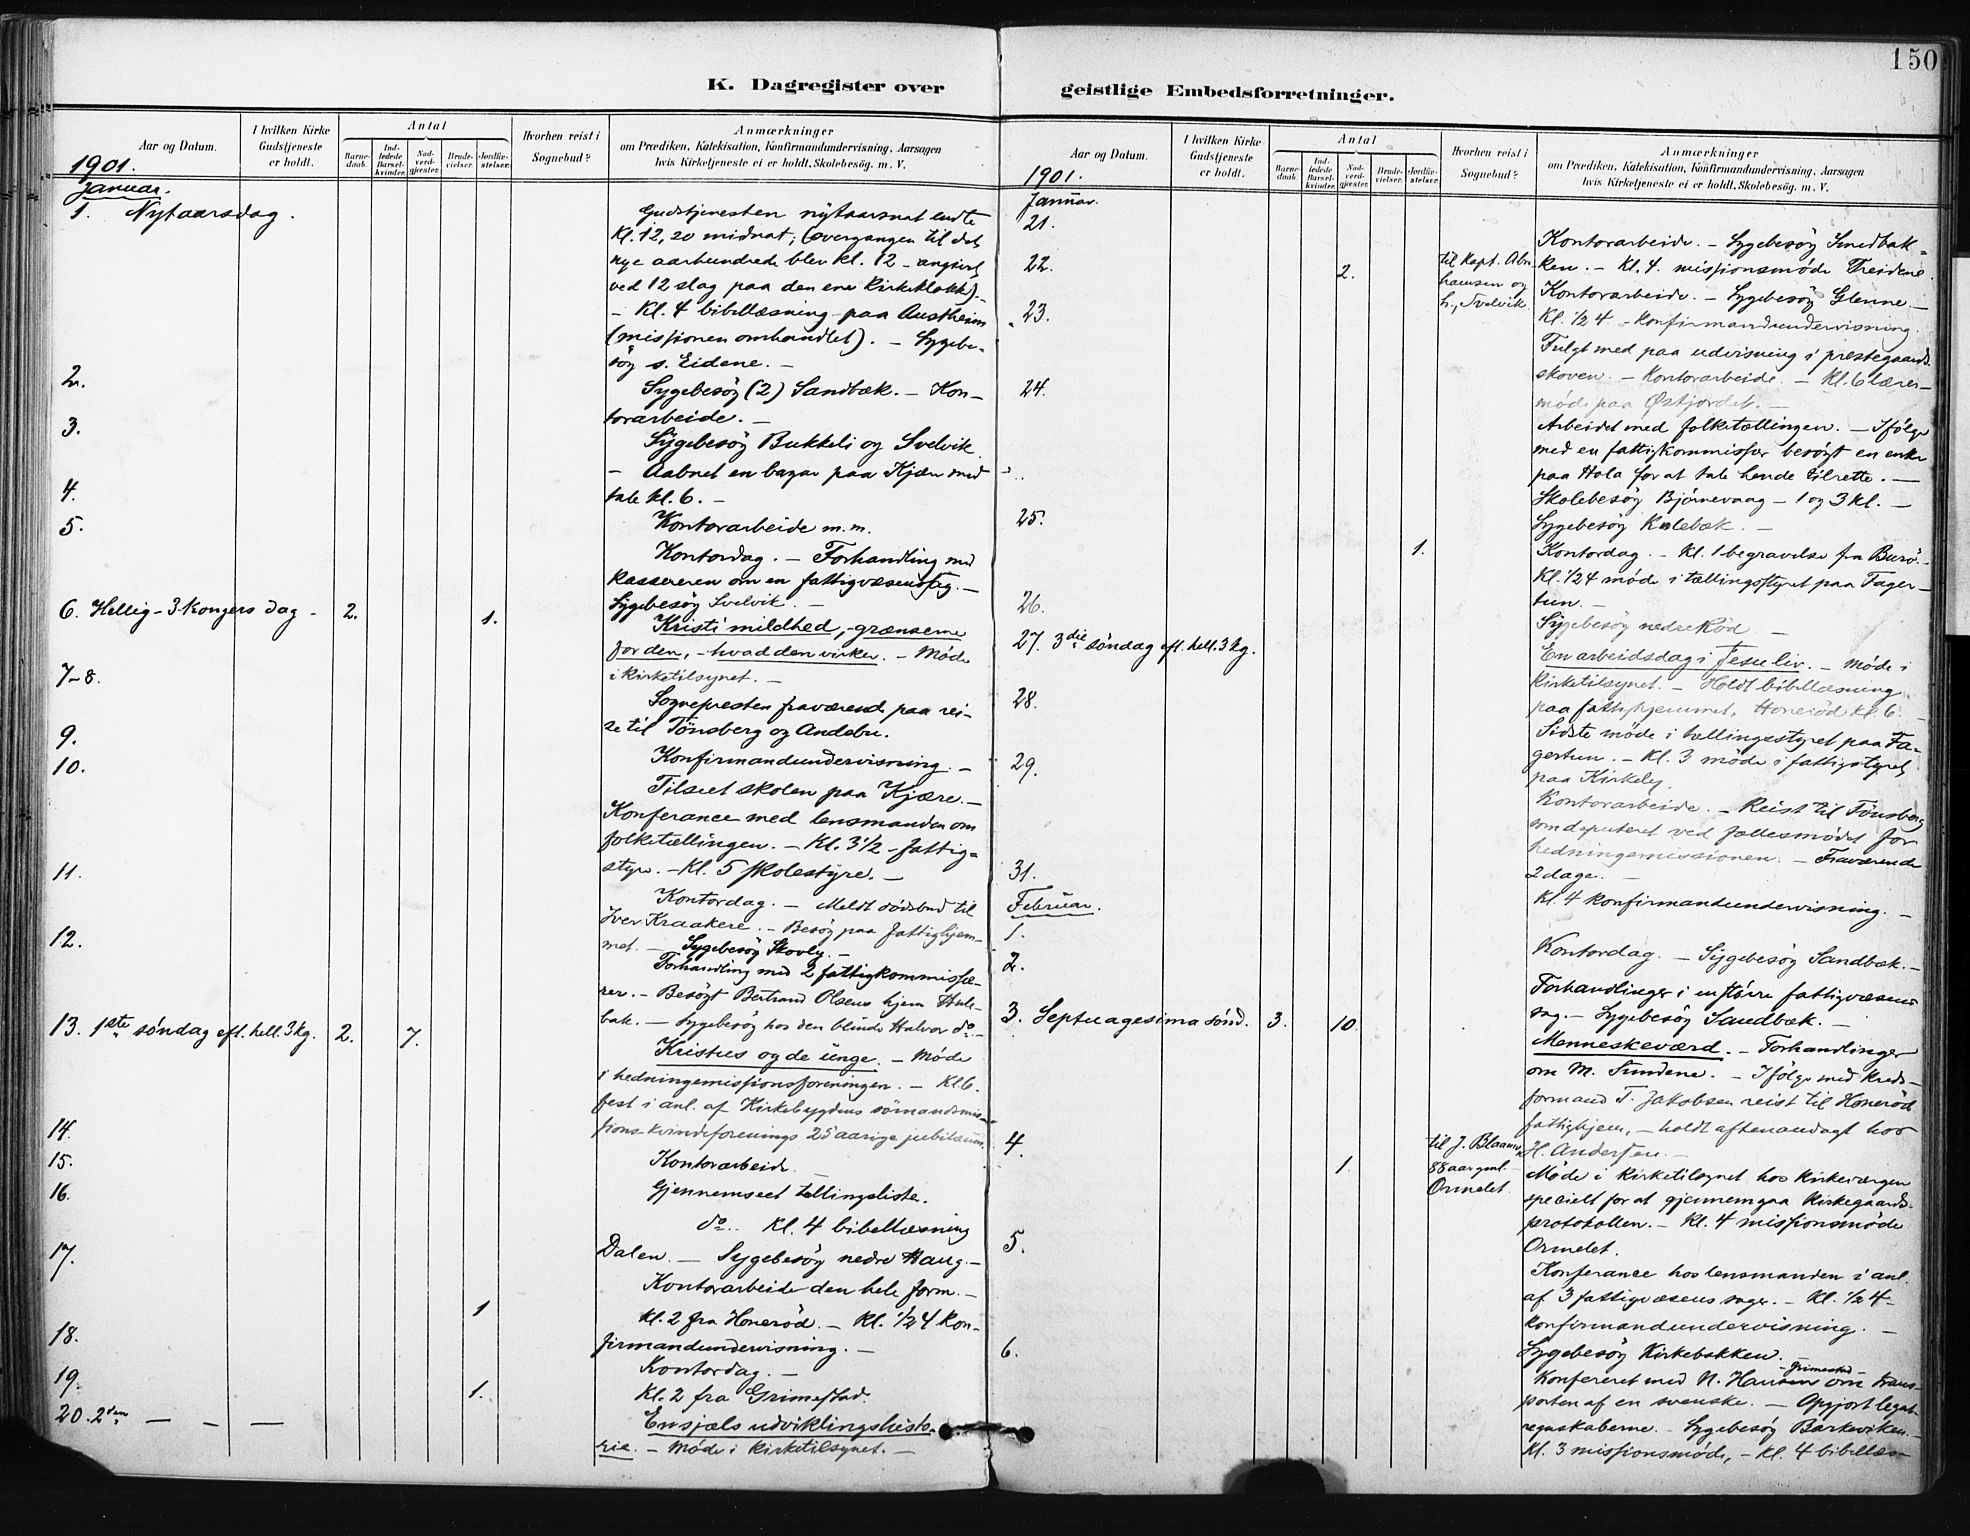 150
K. Dagregister over
geistlige Embedsforretninger.
Aar og Datum.
I hvilken Kirke
Gudstjeneste
er holdt.
Antal
Barne-
daab.
Ind-
ledede
Barsel-
kvinder.
Nad-
verd-
gjester.
Brude-
vielser.
Jordfæ-
stelser.
Hvorhen reist i
Sognebud?
Anmærkninger
om Prædiken, Katekisation, Konfirmandundervisning, Aarsagen
hvis Kirketjeneste ei er holdt, Skolebesøg. m. V.
1901.
Januar.
1. Nytaarsdag.
Gudstjenesten nytaarsnat endte
Kl. 12,20 midnat; (overgangen til det
nye aarhundrede blev kl. 12 - angivet
ved 12 slag paa den ene kirkeklokke). -
- Kl. 4 bibellæsning paa Austheim
(missionen omhandlet). - Sygebe-
søg s. Eidene. -
2.
Sygebesøg (2) Sandbæk. - Kon-
torarbeide. -
3.
Sygebesøg Bukkeli og Svelvik
- Aabnet en bazar paa Kjær med
tale kl. 6. -
4.
Kontorarbeide m.m.
5.
Kontordag. - Forhandling med
kassereren om en fattigvæsenssag. -
Sygebesøg Svelvik. -
6. Hellig-3-kongers dag - 2. 1.
Kristi mildhed, - grænserne
for den, - hvad den virker. - Møde
i kirketilsynet. -
7-8.
Sognepresten fraværende paa rei-
se til Tönsberg og Andebu.
9.
Konfirmandundervisning. -
10.
Tilseet skolen paa Kjære. -
Konferance med lensmanden om
folketællingen. - Kl. 3 1/2 - fattig-
styre. - Kl. 5 skolestyre. -
11.
Kontordag. - Meldt dödsbud til
Iver Kraakere. - Besøg paa fattighjem-
met. - Sygebesøg Skovly. -
12.
Forhandling med 2 fattigkommissæ-
rer. - Besögt Bertrand Olsens hjem Hule-
bak. - Sygebesøg hos den blinde Halvor do. -
13. 1ste søndag eft. hell. 3 kg. 2. 7.
Kristus og de unge. - Møde
i hedningemissionsforeningen. - Kl. 6.
fest i anl. af Kirkebygdens sömandsmis-
sions kvindeforenings 25 aarige jubilæum.
14.
Kontorarbeide
15.
Gjennemseet tællingsliste.
16.
do. Kl. 4 bibellæsning
Dalen. - Sygebesøg nedre Haug. -
17.
Kontorarbeide den hele form. -
1
Kl. 2 fra Honerød. - Kl. 1/2 4 kon-
firmandundervisning. -
18.
Kontordag. -
19. 1.
Kl. 2 fra Grimestad.
20. 2den — - —
En sjæls udviklingshisto-
rie. - Møde i kirketilsynet. -
Aar og Datum.
I hvilken Kirke
Gudstjeneste
er holdt.
Antal
Barne-
daab.
Ind-
ledede
Barsel-
kvinder.
Nad-
verd-
gjester.
Brude-
vielser.
Jordfæ-
stelser.
Hvorhen reist i
Sognebud?
Anmærkninger
om Prædiken, Katekisation, Konfirmandundervisning, Aarsagen
hvis Kirketjeneste ei er holdt, Skolebesøg. m. V.
1901.
Januar.
21.
Kontorarbeide. - Sygebesøg Smedbak-
ken. - Kl. 4. missionsmøde Treidene.
22. 2. til Kapt. Abra-
hamsen og
h., Svelvik.
Kontorarbeide. - Sygebesøg Glenne. -
Kl. 1/2 4 - konfirmandundervisning.
23.
Fulgt med paa udvisning i præstegaards-
skoven. - Kontorarbeide. - Kl. 6 lærer-
møde paa Østjordet. -
24.
Arbeidet med folketællingen. - Ifølge
med en fattigkommissær besøgt en enke
paa Hola for at tale hende tilrette. -
Skolebesøg Bjørnevaag - 1 og 3 kl. -
25.
Sygebesøg Kalebæk. -
1.
Kontordag. - Kl. 1 begravelse fra Burø. -
Kl. 1/2 4 møde i tællingsstyret paa Fager-
tun. -
26.
Sygebesøg nedre Rød -
27. 3die søndag eft. hell. 3 kg.
En arbeidsdag i Jesu liv. - Møde i
kirketilsynet. - Holdt bibellæsning
paa fattighjemmet, Honerød kl. 6. -
28.
Sidste møde i tællingsstyret paa Fa-
gertun. - Kl. 3 møde i fattigstyret
paa Kirkely.
29.
Kontorarbeide. - Reist til Tönsberg
som deputeret ved fællesmødet for
hedningemissionen. - Fraværende
2 dage. -
31.
Kl. 4 konfirmandundervisning. -
Februar.
1.
Kontordag. - Sygebesøg Sandbæk. -
2.
Forhandlinger i en større fattigvæsens-
sag. - Sygebesøg Sandbæk. -
3. Septuagesima sønd. 3. 10.
Menneskeværd. - Forhandlinger
om M. Sundene. - Ifølge med kreds-
formand T. Jakobsen reist til Honerød
fattighjem, - holdt aftenandagt hos
H. Andersen. -
4. 1. til J.
88 aar gml. -
Ormelet.
Møde i kirketilsynet hos kirkeværgen
specielt for at gjennemgaa kirkegaards-
protokollen. - Kl. 4 missionsmøde
Ormelet.
5.
Konferance hos lensmanden i anl.
af 3 fattigvæsens sager. - Kl. 1/2 4 -
konfirmandundervisning. -
6.
Sygebesøg Kirkebakken.
- Grimestad -
Konfereret med N. Hansen om trans-
porten af en svenske. - Opgjort legat-
regnskaberne. - Sygebesøg Barkeviken. -
Kl. 3 missionsmøde, - Kl. 4 bibellæs-